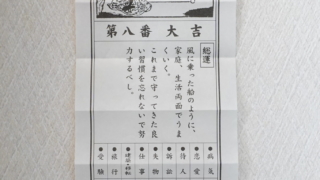 第八番 大吉
総運
風に乗った船のように、
家庭、生活両面でうま
くいく。
これまで守ってきた良
い習慣を忘れないで努
力するべし。
病気
恋愛
待人
訴訟
失物
仕事
旅行
受験